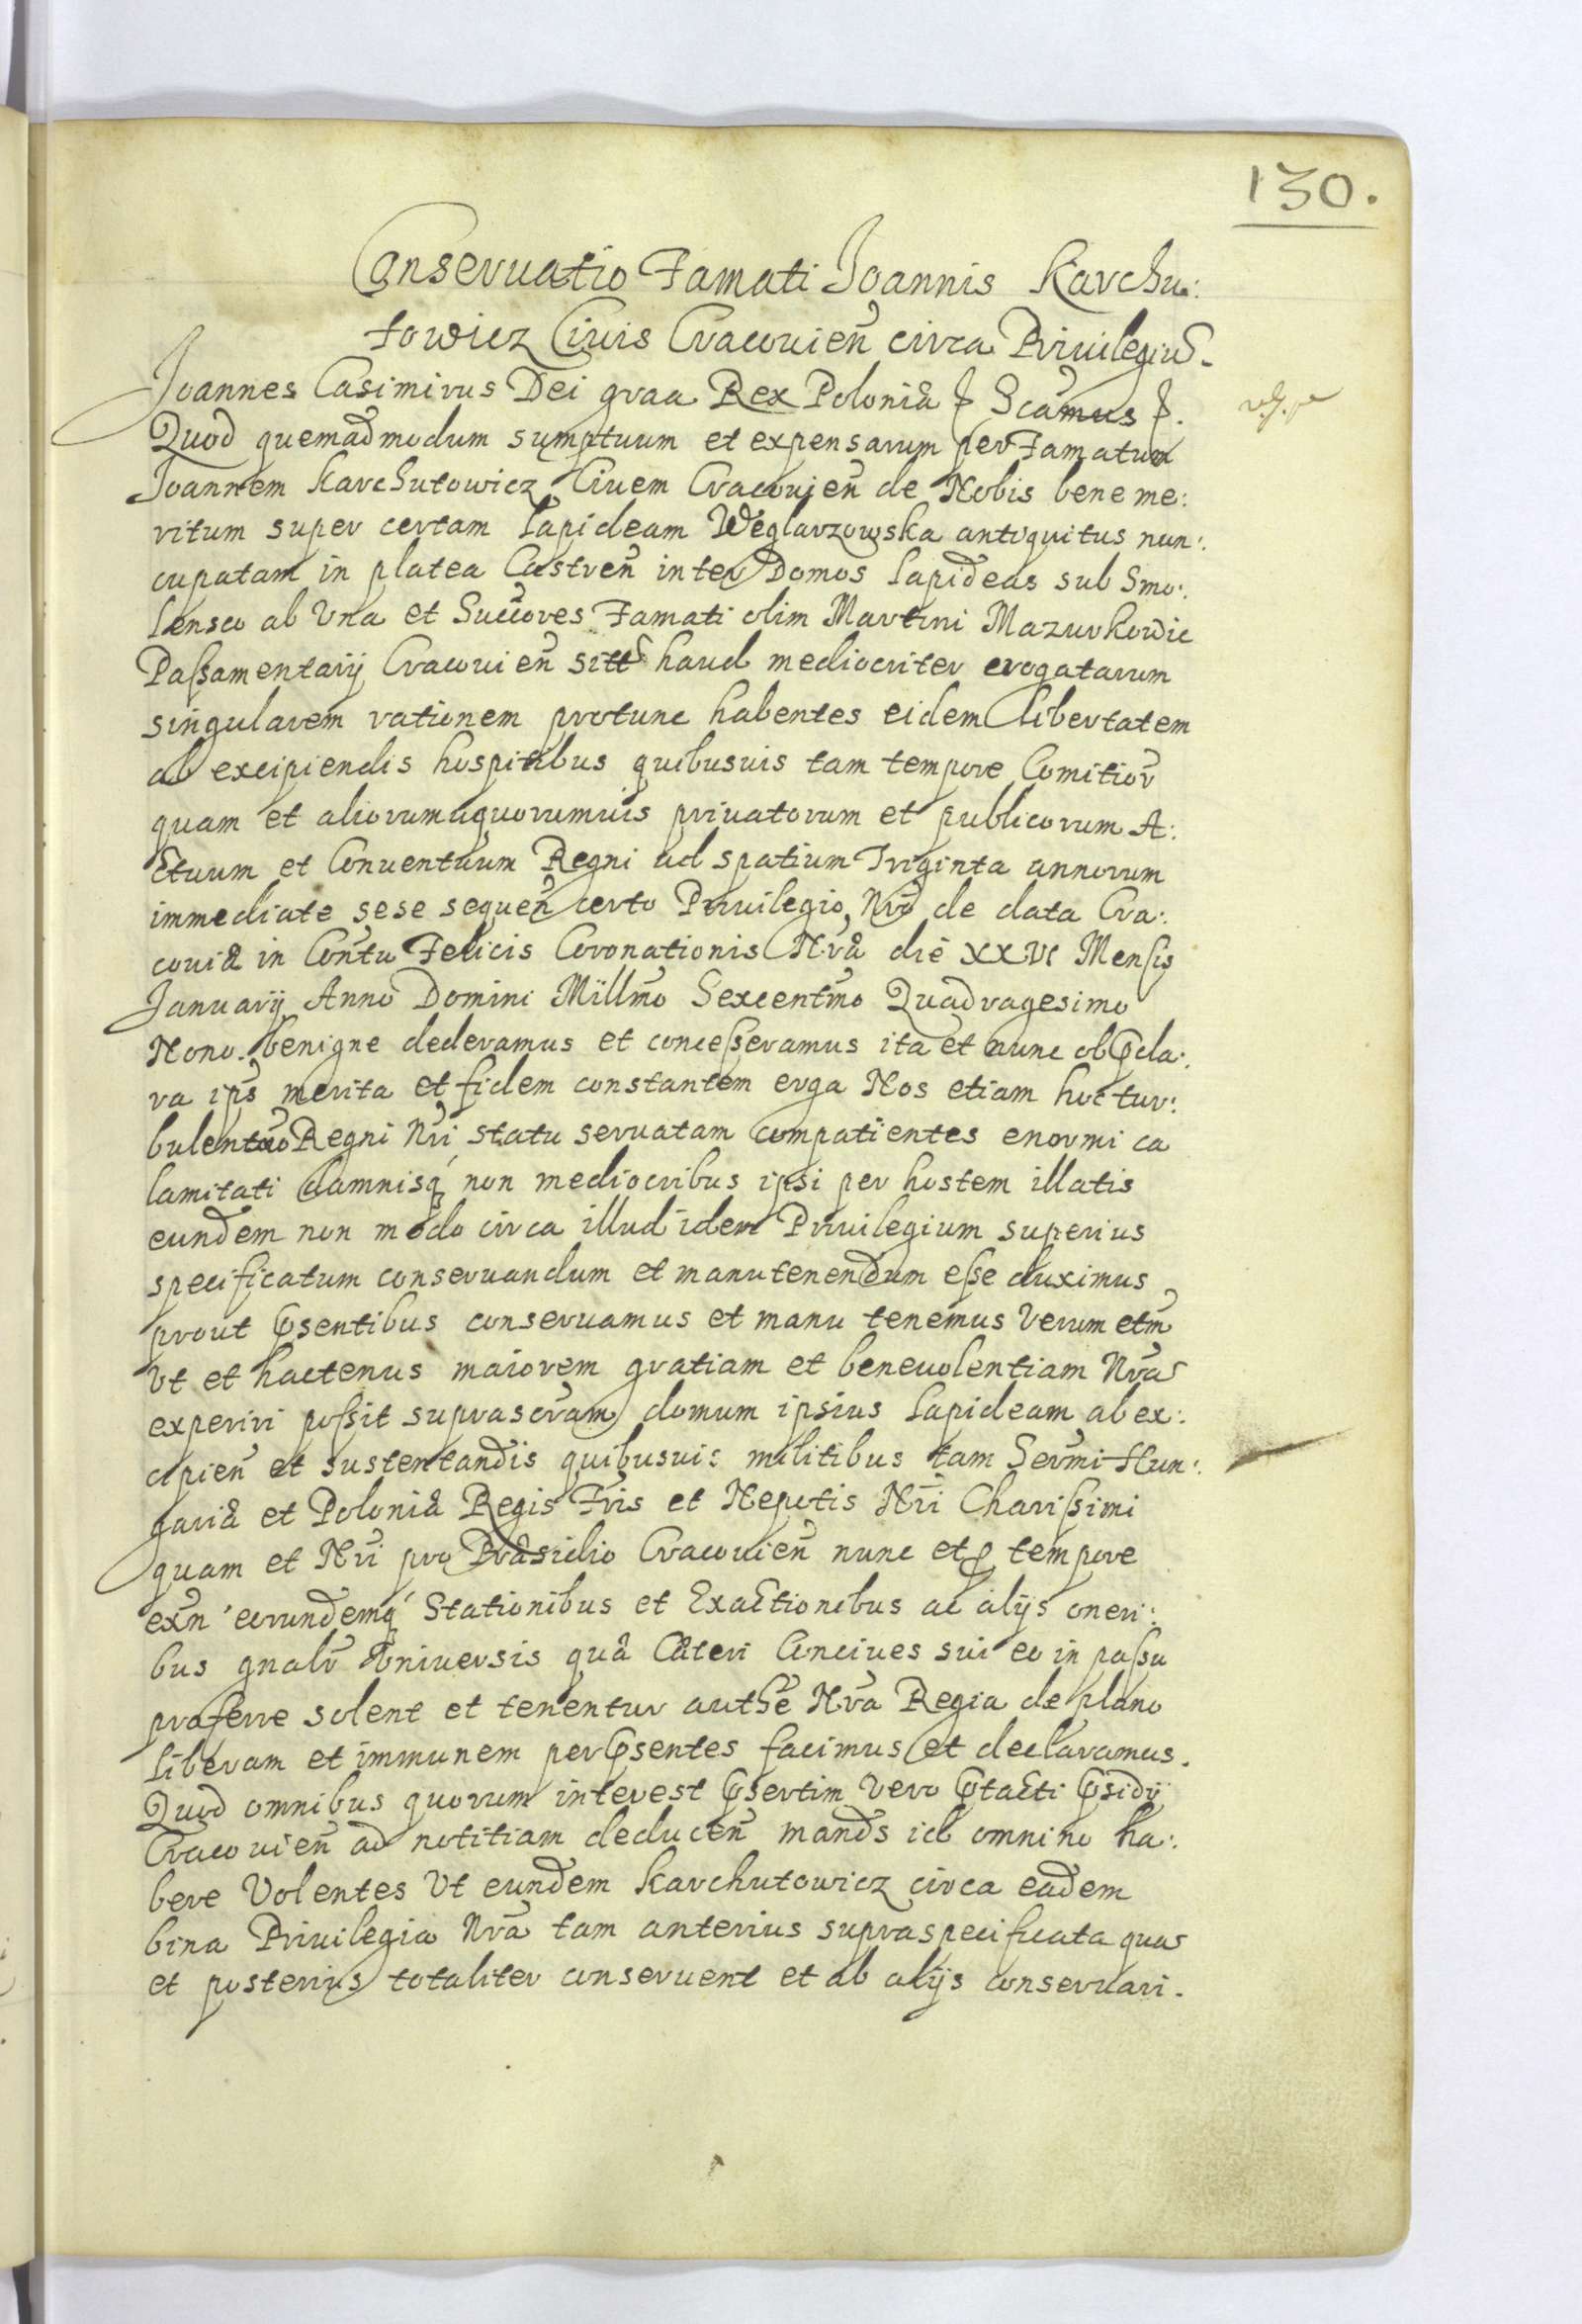 130.
Conseruatio Famati Joannis Karchu:
towicz Ciuis Cracouien̄ circa Priuilegiu̅.
Joannes Casimirus Dei graa Rex Poloniæ & Scamus &.
Quod quemadmodum sumptuum et expensarum per Famatum
Joannem Karchutowicz Ciuem Cracouien̄ de Nobis bene me:
ritum super certam lapideam Węglarzowska antiquitus nun:
cupatam in platea Castren̄ inter Domos lapideas sub Smo:
lensco ab Vna et Succores Famati olim Martini Mazurkowic
Paſsamentarij Cracouien̄ sitt haud mediocriter erogatarum
singularem rationem protunc habentes eidem libertatem
ab excipiendis hospitibus quibusuis tam tempore Comitior̄
quam et aliorum quorumuis priuatorum et publicorum A:
ctuum et Conuentuum Regni ad spatium Triginta annorum
immediate sese sequen̄ certo Priuilegio Nr̄o de data Cra:
couiæ in Con̄tu Felicis Coronationis Nr̄æ die XXVI Menſis
Januarij Anno Domini Millmo Sexcentmo Quadragesimo
Nono. benigne dederamus et conceſseramus ita et nunc ob p̄cla:
ra ip̄s merita et fidem constantem erga Nos etiam hoc tur:
bulento Regni Nr̄i statu seruatam compatientes enormi ca
lamitati damnisq́ non mediocribus ipsi per hostem illatis
eundem non modo circa illud idem Priuilegium superius
specificatum conseruandum et manutenendum eſse duximus
prout p̄sentibus conseruamus et manu tenemus Verum etm̄
Vt et hactenus maiorem gratiam et beneuolentiam Nr̄a
experiri poſsit suprascr̄am domum ipsius lapideam ab ex:
cipien̄ et sustentandis quibusuis militibus tam Serm̄i Hun:
gariæ et Poloniæ Regis Fr̄is et Nepotis Nr̄i Chariſsimi
quam et Nr̄i pro Præsidio Cracouien̄ nunc et p tempore
exn̄ eorundemq́ Stationibus et Exactionibus ac alijs oneri:
bus gnalr̄ Vniuersis quæ Cæteri Conciues sui eo in paſsu
præferre solent et tenentur auth̄e Nr̄a Regia de plano
liberam et immunem per p̄sentes facimus et declaramus.
Quod omnibus quorum interest p̄sertim Vero p̄facti p̄sidij
Cracouien̄ ad notitiam deducen̄ mand̄s id omnino ha:
bere Volentes Vt eundem Karchutowicz circa eadem
bina Priuilegia Nr̄a tam anterius supraspecificata qua
et posterius totaliter conseruent et ab alijs conseruari.